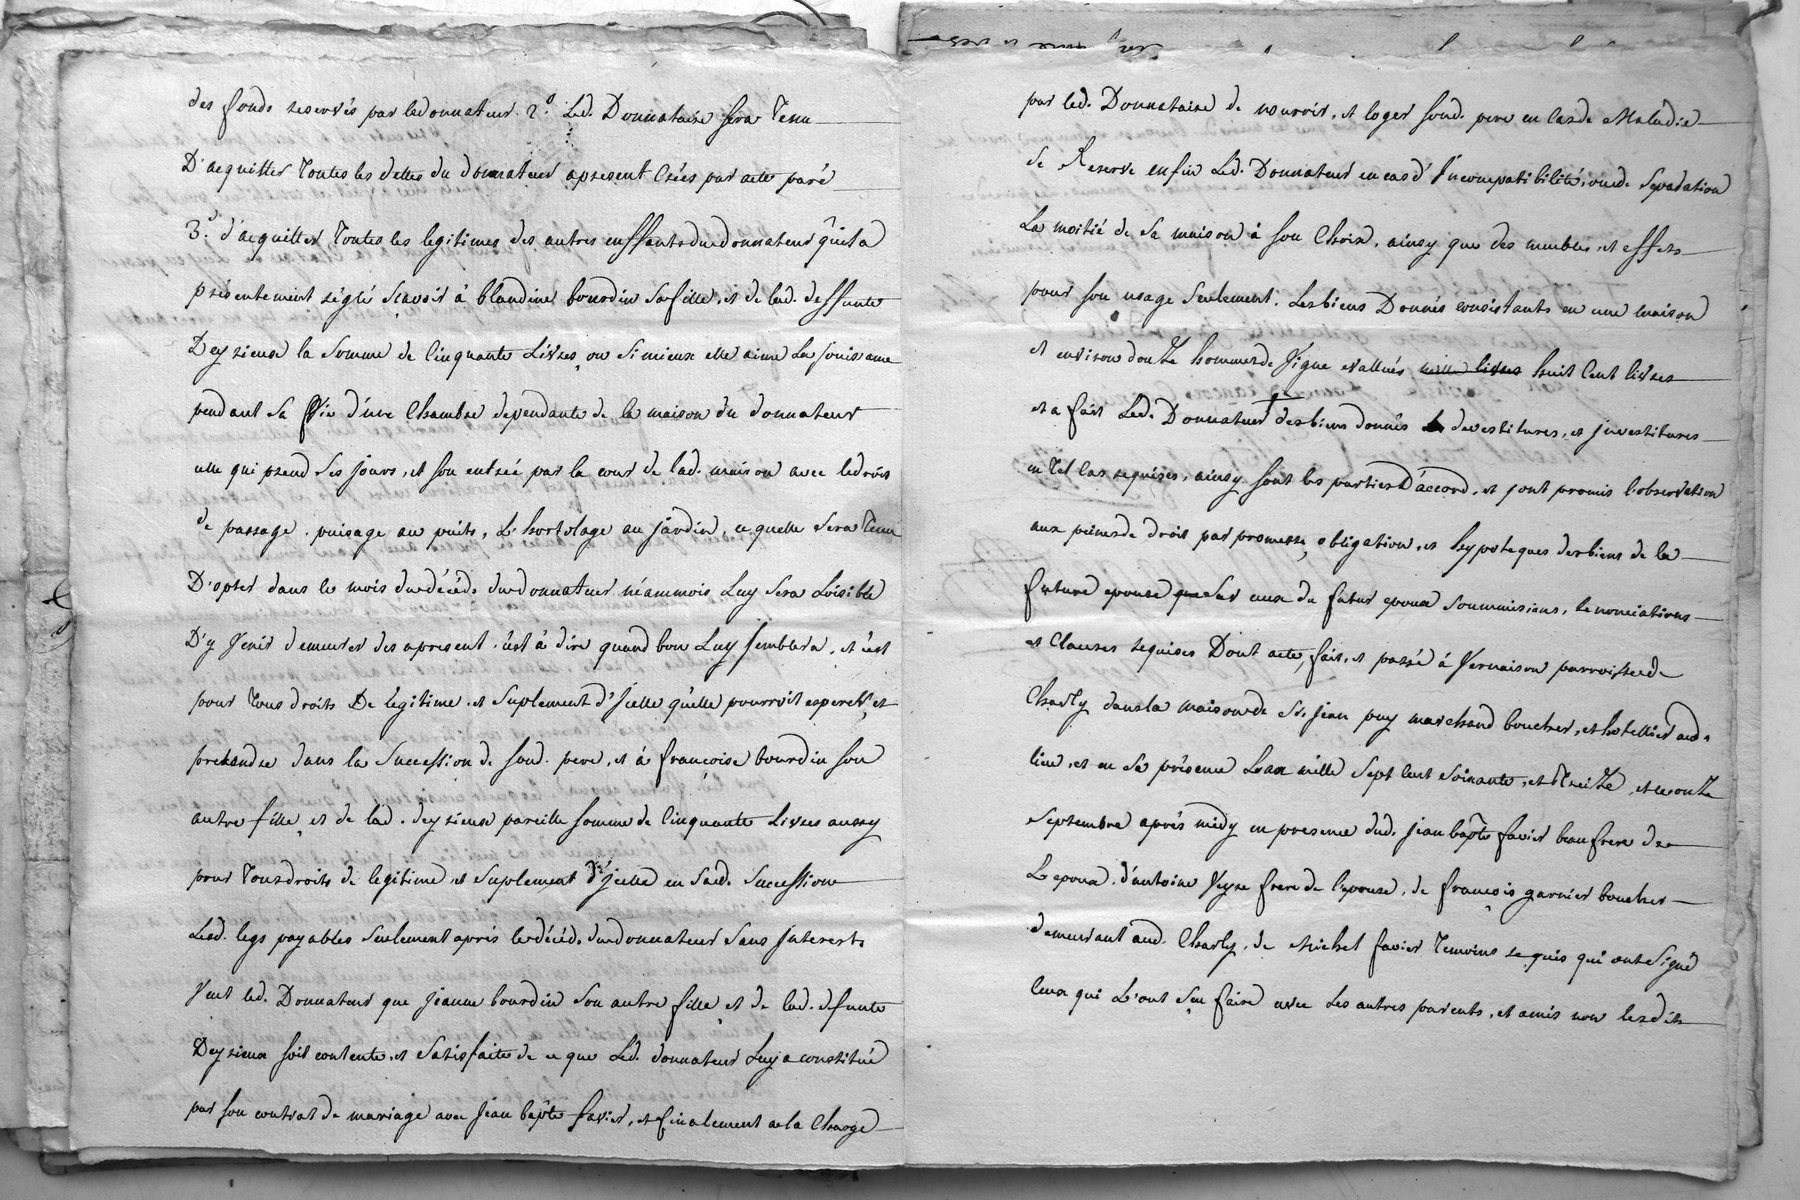 des fonds reservés par ledonnateur. 2.° Led. Donnataire sera Tenu
D'acquitter Toutes les dettes du donnateur apresent Crées par acte paré
3.° d'acquitter Toutes les legitimes des autres enffants dudonnateur qu'il a
présentement réglé scavoir à blandine bourdin sa fille, et de lad. deffunte
Deyrieux la somme de Cinquante Livres, ou si mieux elle aime La jouissance
pendant sa Vie d'une Chambre dependante de la maison du donnateur
elle qui prend ses jours, et son entrée par la cour de lad. maison avec ledroit
de passage, puisage au puits, L'hortolage au jardin, ce quelle sera Tenu
D'opter dans le mois dudécéd. dudonnateur néammois Luy sera Loisible
D'y Venir demeurer des apresent, c'est à dire quand bon Luy semblera, et c'est
pour Tous droits De legitime, et suplement d'Jcelle qu'elle pourroit esperer, et
pretendre dans la succession de sond. pere, et à francoise bourdin son
autre fille, et de lad. deyrieux pareille somme de Cinquante Livres aussy
pour Tousdroits de legitime, et suplement d'jcelle en sad. succession
Lesd. legs payables seulement après ledécéd. dudonnateur sans Interest.
Veut led. Donnateur que jeanne bourdin son autre fille, et de lad. defunte
Deyrieux soit contente, et satisfaite de ce que Led. donnateur Luy a constitué
par son contrat de mariage avec jean bapte favier, et finalement a la Charge
par led. Donnataire de nourrir, et loger sond. pere en Cas de Maladie
se Reserve enfin Led. Donnateur en cas d'Incompatibilité, oude separation
La moitié de sa maison à son Choix, ainsy que des meubles, et effets
pour son usage seulement. Lesbiens Donnés consistants en une maison
et environ douze hommes de Vigne evallués mille livres huit Cent livres
et a fait Led. Donnateur des biens donnés devestitures, et jnvestitures
en Tel Cas requises, ainsy sont les parties d'accord, et jont promis l'observation
aux peines de droit par promesse, obligation, et hypoteques desbiens de la
future epouse que sur ceux du futur epoux soummisions, Renonciations
et Clauses requises Dont acte, fait, et passé à Vernaison parroisse de
Charly dans la maison de Sr. jean puy marchand boucher, et hotellier aud.
lieu, et en sa présence Lan mille sept Cent soixante, et Treize, et le onze
septembre après midy en presence dud. jean bapte favier beaufrere de
Lepoux, d'antoine Veyre frere de l'epouse, de francois garnier boucher
demeurant aud. Charly, de Michel favier Temoins requis qui ont signé
Ceux qui L'ont sçu faire avec Les autres parents, et amis non lesdits